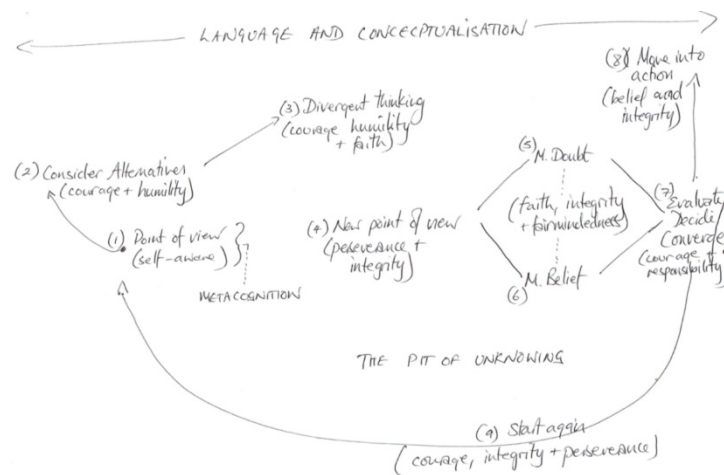 LANGUAGE AND CONCECPTUALISATION
(8) Move into
action
(belief and
integrity)
(3) Divergent thinking
(courage humility
+ faith)
(2) Consider Alternatives
(courage + humility)
(5)
M. Doubt
(1) Point of view
(self-aware)
METACOGNITION
(4) New point of view
(perseverance +
integrity)
(faith, integrity
+ fairmindedness)
(6)
M. Belief
(7) Evaluate
Decide
Converge
(courage +
responsibility)
THE PIT OF UNKNOWING
(9) Start again
(courage, integrity + perseverance)